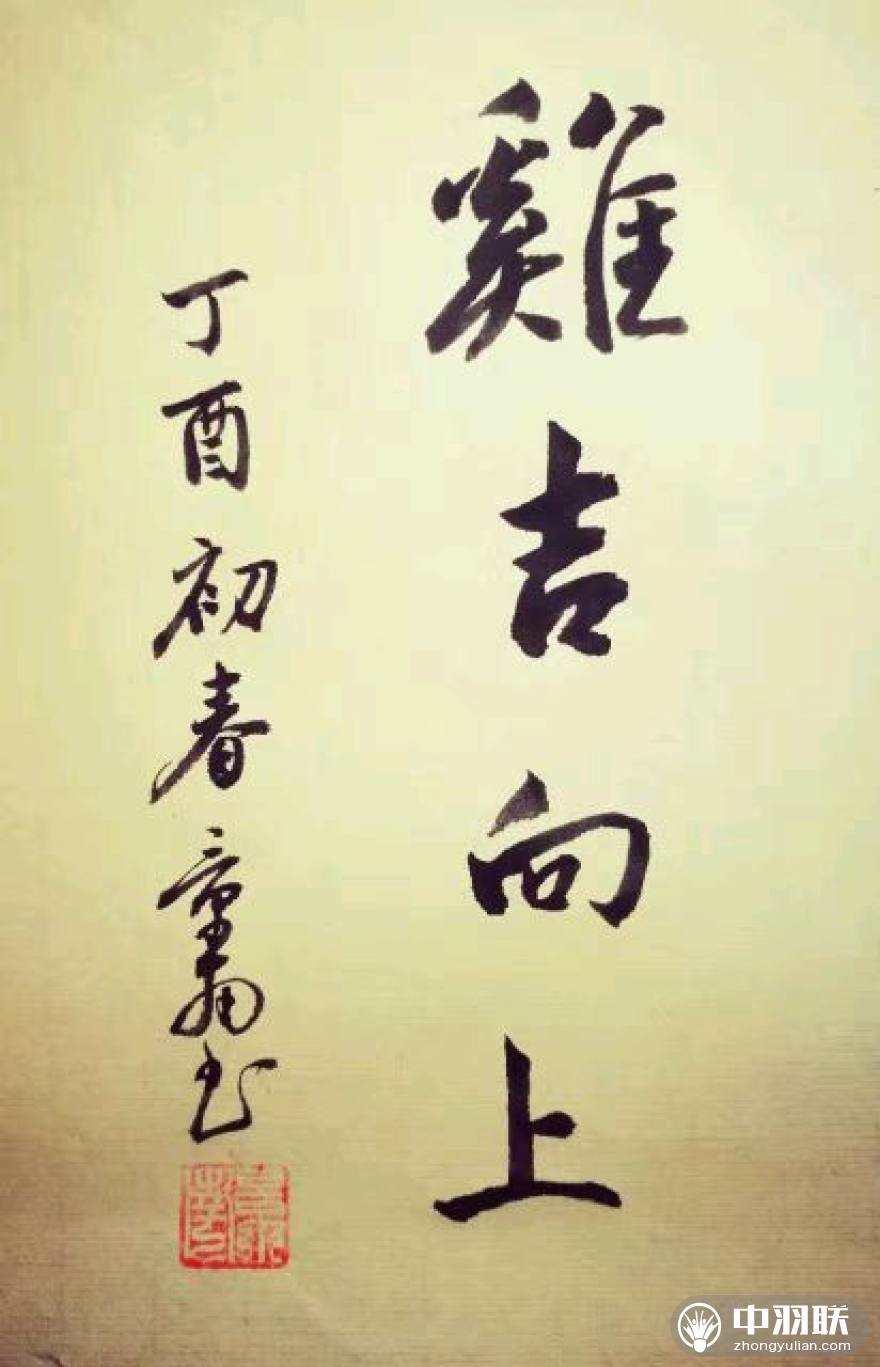 雞吉向上
丁酉初春童翁书
中羽联
zhongyulian.com